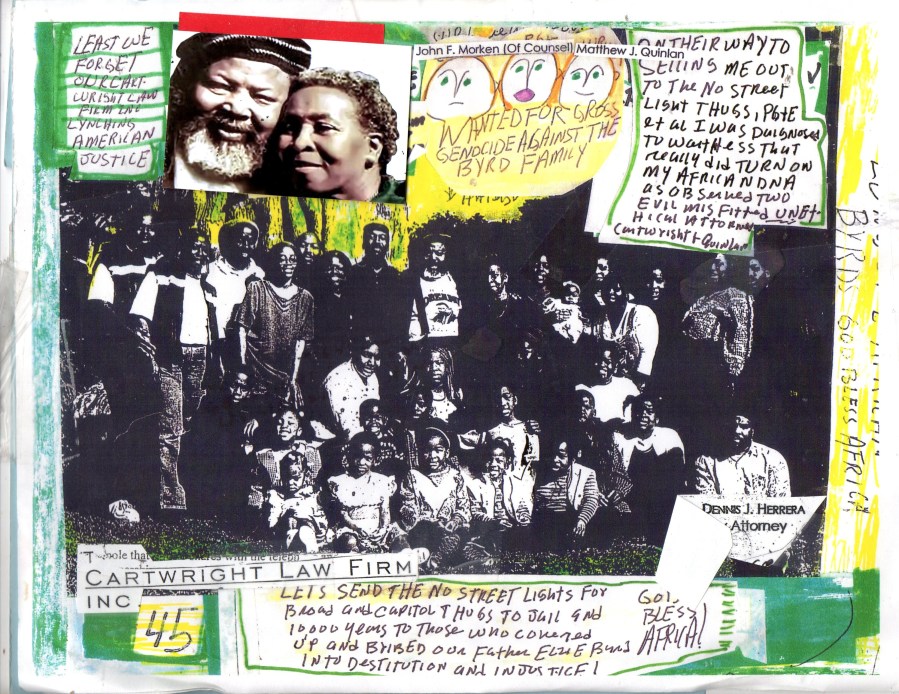 LEAST WE
FORGET
OUR CART
WRIGHT LAW
FIRM INC
LYNCHING
AMERICAN
JUSTICE
John F. Morken (Of Counsel) Matthew J. Quinlan
WANTED FOR GROSS
GENOCIDE AGAINST THE
BYRD FAMILY
ON THEIR WAY TO
SELLING ME OUT
TO THE NO STREET
LIGHT THUGS, PG&E
et al I WAS DIAGNOSED
TO WARTNESS THAT
really did TURN ON
MY AFRICAN DNA
as OBSERVED TWO
EVIL MISFITTED UNET-
HICAL ATTORNEY
Cartwright + Quinlan
BYRDS GOD BLESS AFRICA
DENNIS J. HERRERA
Attorney
pole that
with the teleph
CARTWRIGHT LAW FIRM
INC
45
LETS SEND THE NO STREET LIGHTS FOR
BROAD and CAPITOL THUGS TO JAIL and
10000 YEARS TO THOSE WHO COVERED
UP and BRIBED OUR FATHER ELZIE BYRD
INTO DESTITUTION and INJUSTICE!
GOD
BLESS
AFRICA!